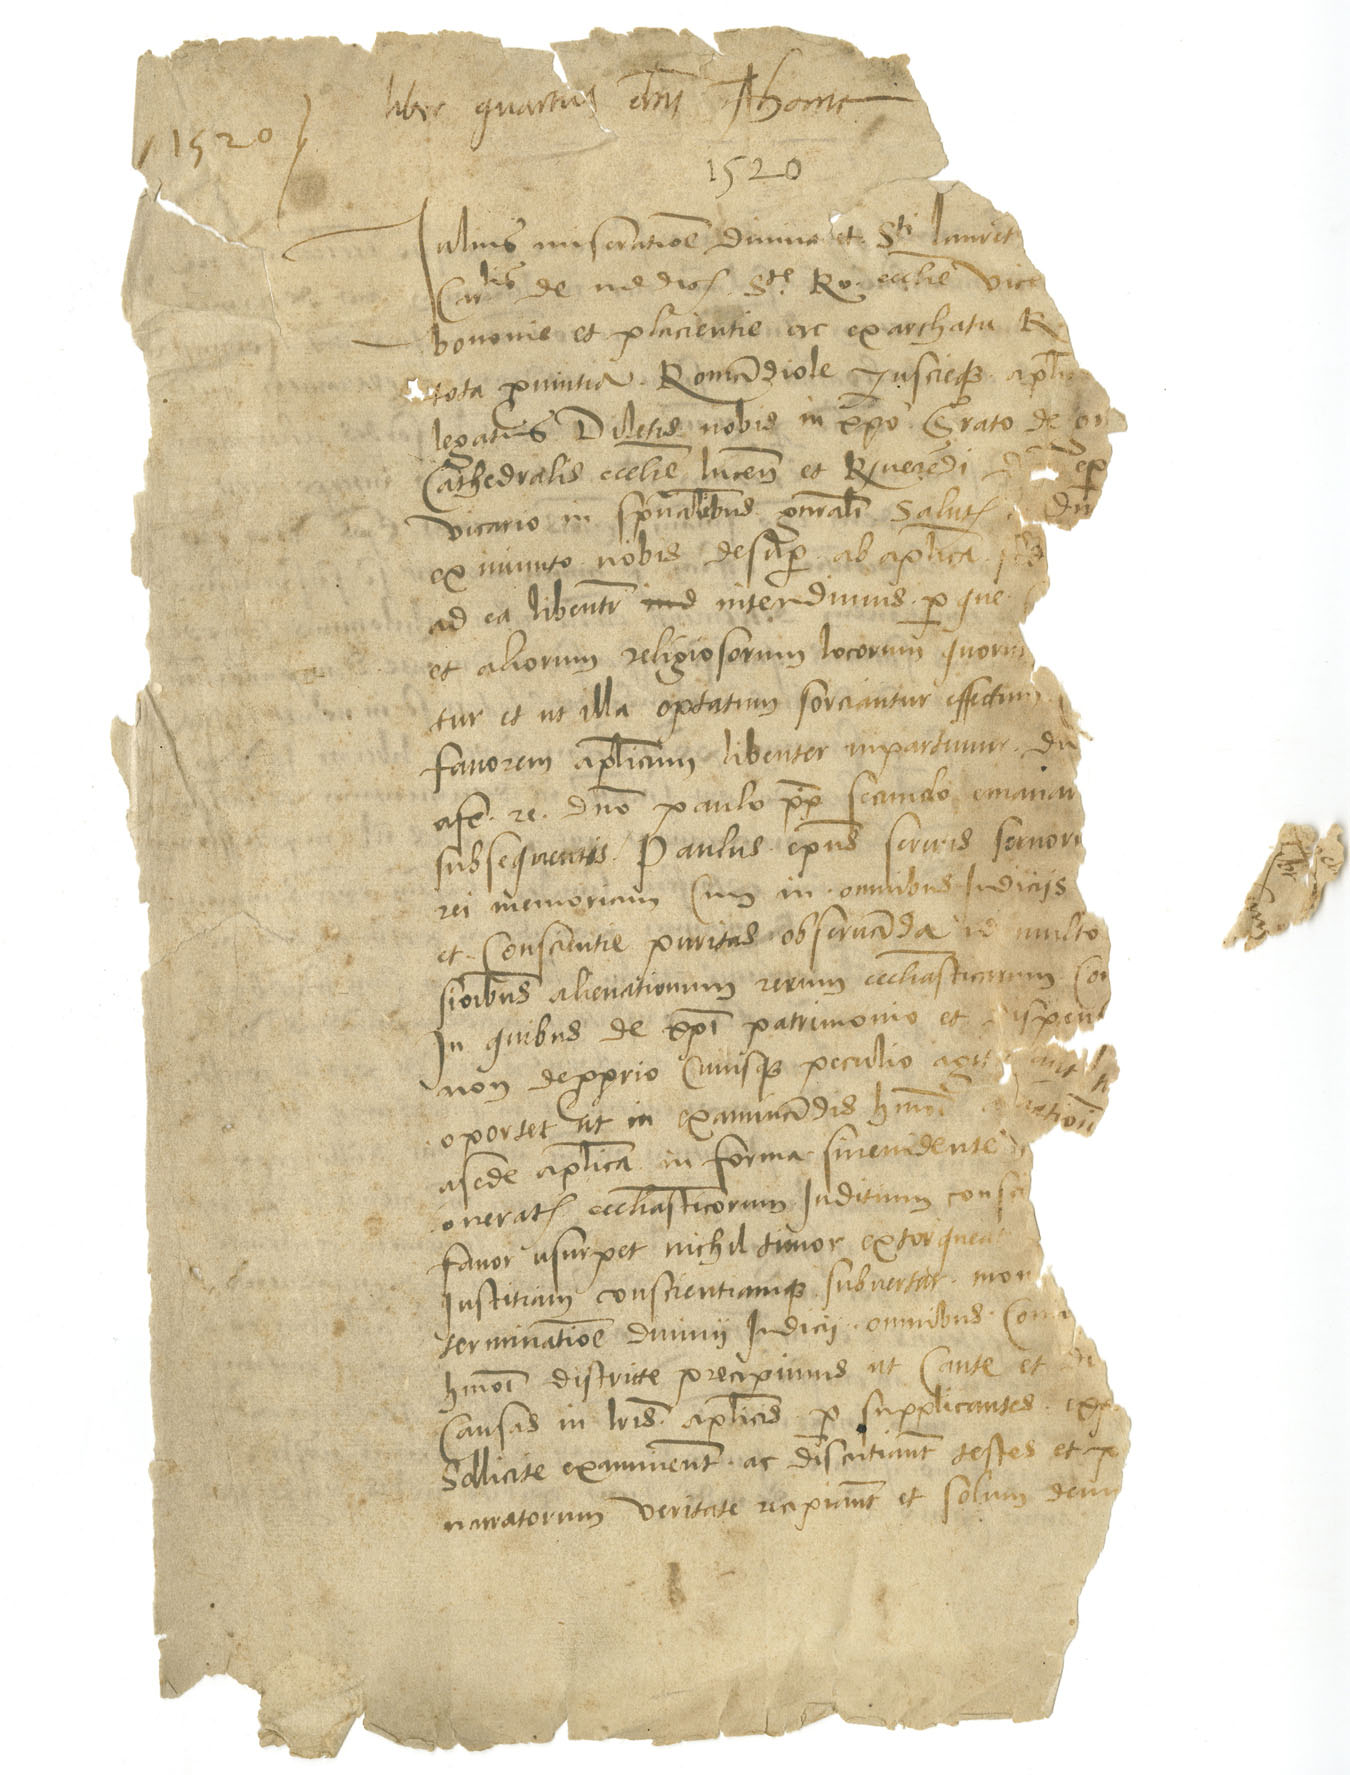 liber quartus
1520
1520
Julius miseratiōe Divina et Sti laurēt
Carlis de medicis Ste Ro. ecclie Vice
bononie et placientie ac exarchatu R
tota pvintia Romādiole Tuscieqz aplice
legatus Dilectis nobis in xpo Grato de gr
Cathedralis ecclie lucen et Rveredi ep
vicario in spualibus gnrali Salut Du
ex iniuncto nobis desup ab aplica
ad ea libentr intendimus p que
et aliorum religiosorum locorum quoru
tur et ut illa optatum sorciantur effectum
favorem aplicum libenter impartimur Du
a fe. re. dno paulo pp secundo emanar
subsequentis Paulus epus servus servoru
rei memoriam Cum in omnibus Judicijs
et Conscientie puritas observāda id multo
sioibus alienationum rerum ecclīasticarum Co
In quibus de xpi patrimonio et dispens
non de pprio Cuiusqz peculio agit
oportet ut in examinādis hmōi
a sede aplica in forma si in evidente
onerat ecclīasticorum Juditium consci
favor usurpet nichil timor extorqueat
Justitiam conscientiamqz subvertat mon
terminatiōe divinij Judicij omnibus Com
hmoi districte precipimus ut Caute et di
Causas in lris aplicis p supplicantes exp
Sollicite examinent ac discutiant testes et p
narratorum veritate recipiant et solum deum